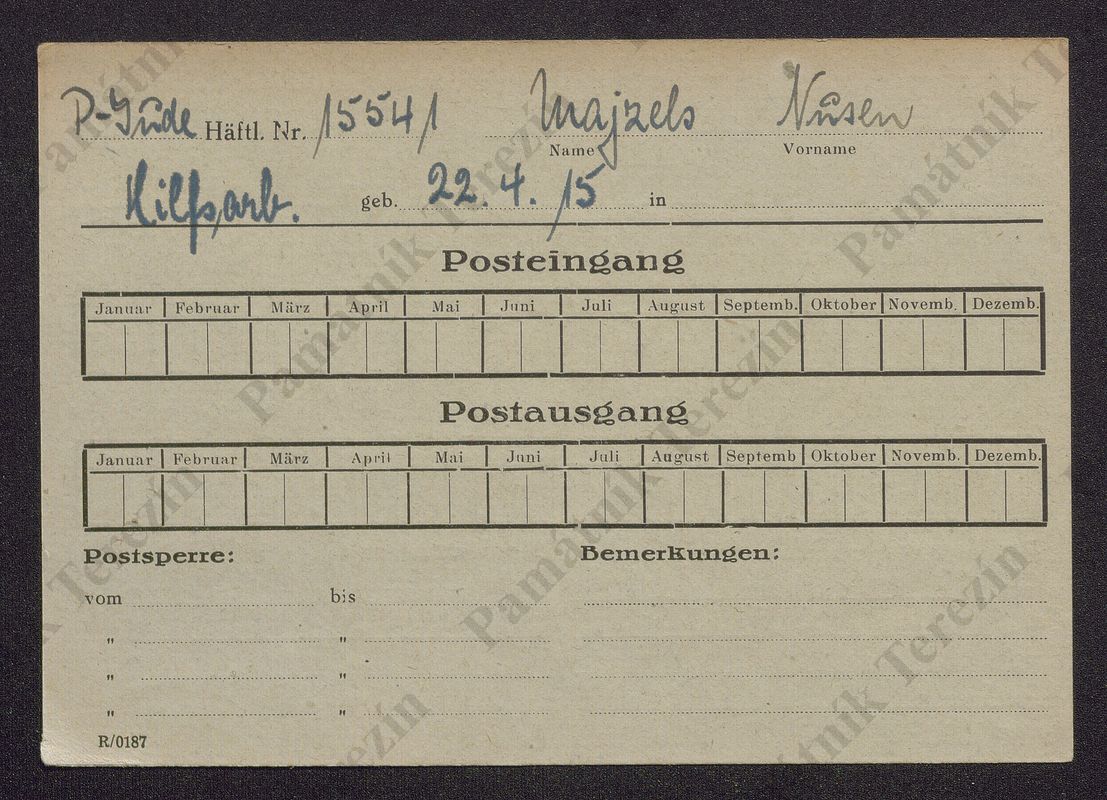 P-Jude Häftl. Nr. 15541 Majzels Nusen
Name Vorname
Hilfsarb. geb. 22. 4. 15 in
Posteingang
Januar Februar März April Mai Juni Juli August Septemb. Oktober Novemb. Dezemb.
Postausgang
Januar Februar März April Mai Juni Juli August Septemb Oktober Novemb. Dezemb.
Postsperre: Bemerkungen:
vom bis
" "
" "
" "
R/0187
Památník Terezín